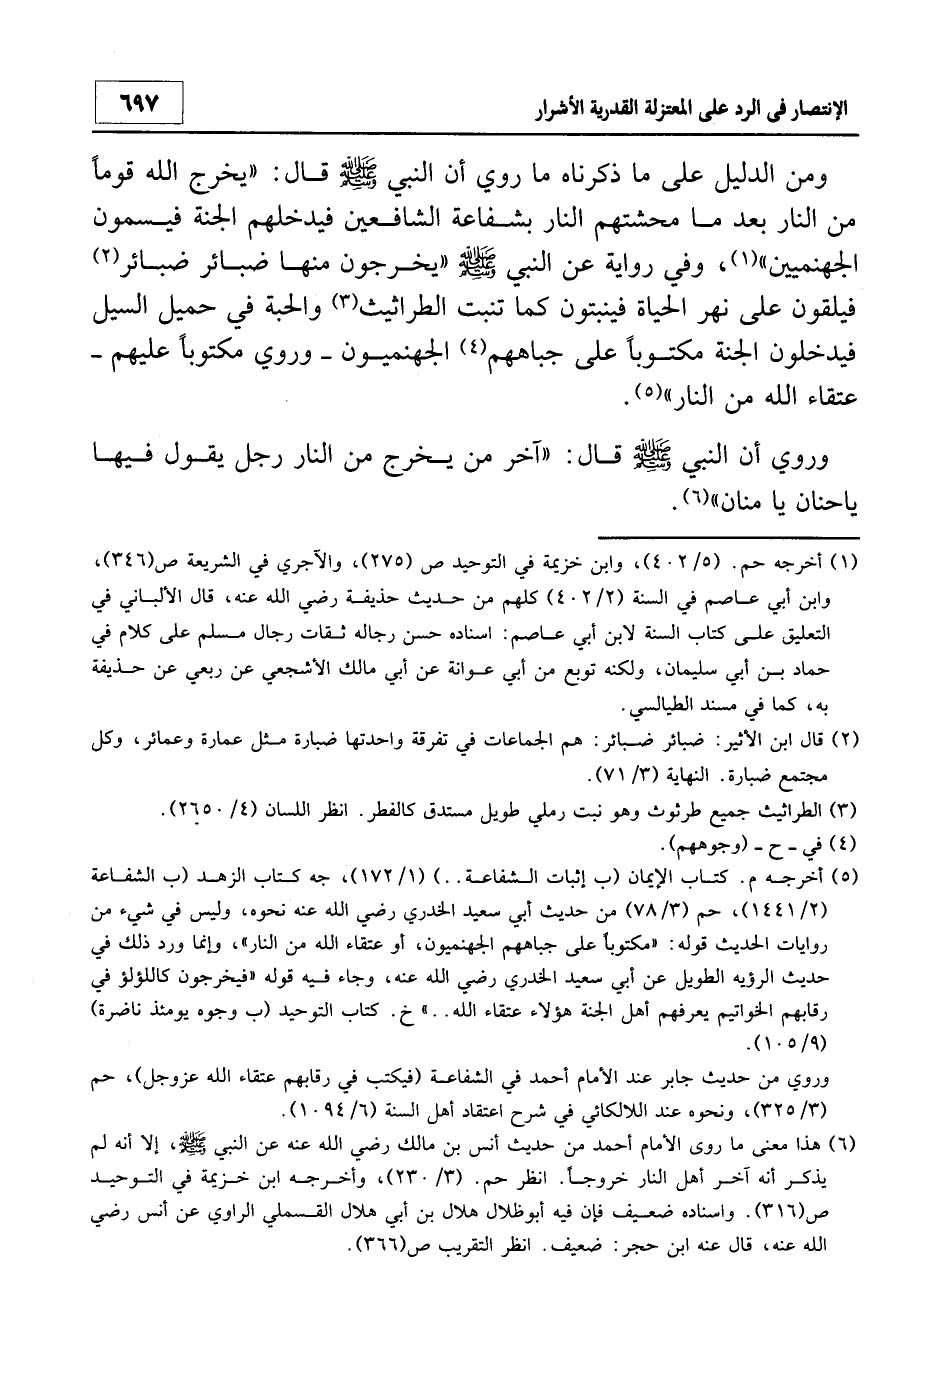 الإنتصار في الرد على المعتزلة القدرية الأشرار
٦٩٧
ومن الدليل على ما ذكرناه ما روي أن النبي ﷺ قال: «يخرج الله قوماً
من النار بعد ما محشتهم النار بشفاعة الشافعين فيدخلهم الجنة فيسمون
الجهنميين»(١)، وفي رواية عن النبي ﷺ «يخرجون منها ضبائر ضبائر(٢)
فيلقون على نهر الحياة فينبتون كما تنبت الطراثيث(٣) والحبة في حميل السيل
فيدخلون الجنة مكتوباً على جباههم(٤) الجهنميون ـ وروي مكتوباً عليهم ـ
عتقاء الله من النار»(٥).
وروي أن النبي ﷺ قال: «آخر من يخرج من النار رجل يقول فيها
ياحنان يا منان»(٦).
(١) أخرجه حم. (٤٠٢/٥)، وابن خزيمة في التوحيد ص (٢٧٥)، والآجري في الشريعة ص(٣٤٦)،
وابن أبي عاصم في السنة (٤٠٢/٢) كلهم من حديث حذيفة رضي الله عنه، قال الألباني في
التعليق على كتاب السنة لابن أبي عاصم: اسناده حسن رجاله ثقات رجال مسلم على كلام في
حماد بن أبي سليمان، ولكنه توبع من أبي عوانة عن أبي مالك الأشجعي عن ربعي عن حذيفة
به، كما في مسند الطيالسي.
(٢) قال ابن الأثير: ضبائر ضبائر: هم الجماعات في تفرقة واحدتها ضبارة مثل عمارة وعمائر، وكل
مجتمع ضبارة. النهاية (٧١/٣).
(٣) الطراثيث جميع طرثوث وهو نبت رملي طويل مستدق كالفطر. انظر اللسان (٢٦٥٠/٤).
(٤) في ـ ح ـ (وجوههم).
(٥) أخرجه م. كتاب الإيمان (ب إثبات الشفاعة..) (١٧٢/١)، جه كتاب الزهد (ب الشفاعة
(١٤٤١/٢)، حم (٧٨/٣) من حديث أبي سعيد الخدري رضي الله عنه نحوه، وليس في شيء من
روايات الحديث قوله: «مكتوباً على جباههم الجهنميون، أو عتقاء الله من النار»، وإنما ورد ذلك في
حديث الرؤيه الطويل عن أبي سعيد الخدري رضي الله عنه، وجاء فيه قوله «فيخرجون كاللؤلؤ في
رقابهم الخواتيم يعرفهم أهل الجنة هؤلاء عتقاء الله..» خ. كتاب التوحيد (ب وجوه يومئذ ناضرة)
(١٠٥/٩).
وروي من حديث جابر عند الإمام أحمد في الشفاعة (فيكتب في رقابهم عتقاء الله عزوجل)، حم
(٣٢٥/٣)، ونحوه عند اللالكائي في شرح اعتقاد أهل السنة (١٠٩٤/٦).
(٦) هذا معنى ما روى الأمام أحمد من حديث أنس بن مالك رضي الله عنه عن النبي ﷺ، إلا أنه لم
يذكر أنه آخر أهل النار خروجاً. انظر حم. (٢٣٠/٣)، وأخرجه ابن خزيمة في التوحيد
ص(٣١٦). واسناده ضعيف فإن فيه أبوظلال هلال بن أبي هلال القسملي الراوي عن أنس رضي
الله عنه، قال عنه ابن حجر: ضعيف. انظر التقريب ص(٣٦٦).